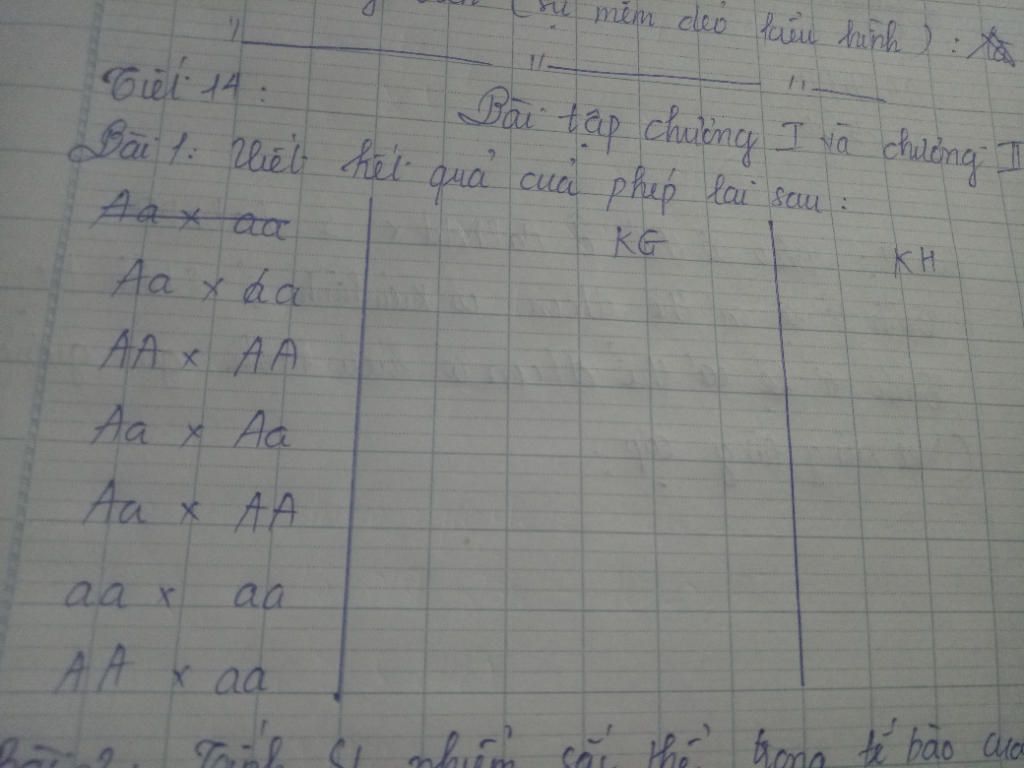 (sự mềm dẻo kiểu hình) :
Tiết 14 :
Bài tập chương I và chương II
Bài 1: Viết kết quả của phép lai sau :
Aa x aa
KG KH
Aa x aa
AA x AA
Aa x Aa
Aa x AA
aa x aa
AA x aa
Bài 2. nhiễm sắc thể trong tế bào của